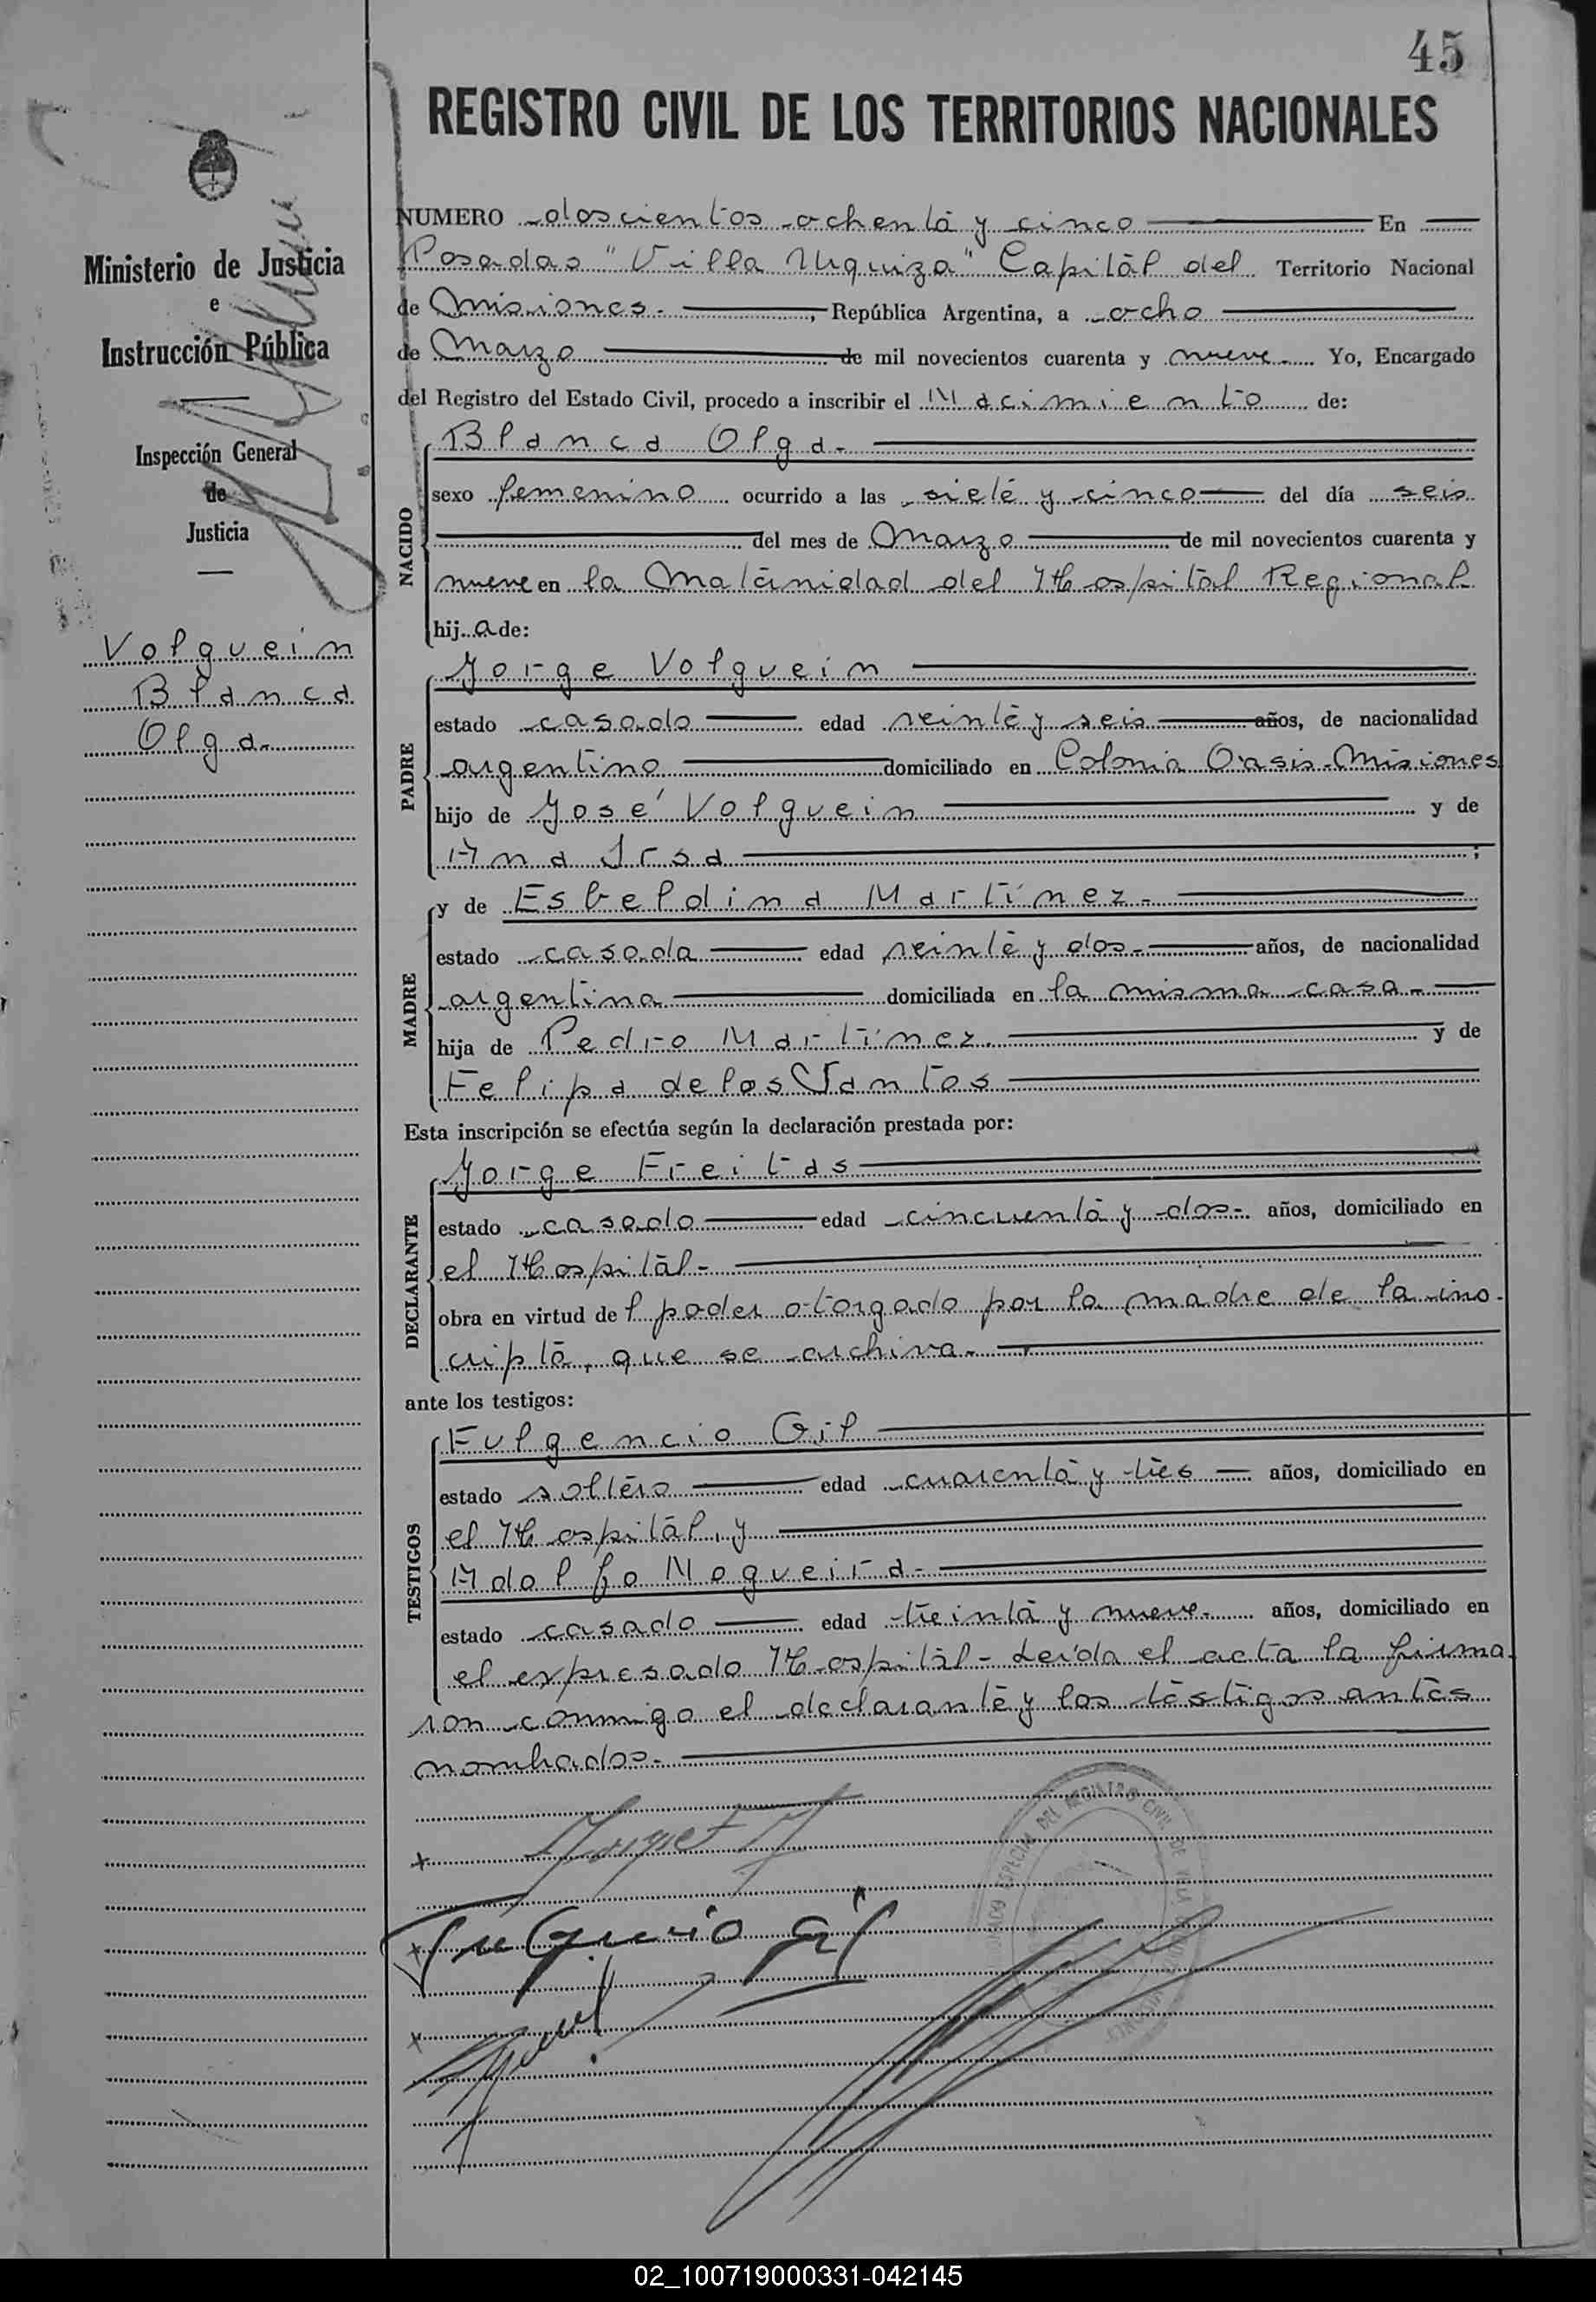 45
REGISTRO CIVIL DE LOS TERRITORIOS NACIONALES
Ministerio de Justicia
e
Instrucción Pública
Inspección General
de
Justicia
Volguein
Blanca
Olga.
NUMERO doscientos ochenta y cinco En
Posadas "Villa Urquiza" Capital del Territorio Nacional
de Misiones. , República Argentina, a ocho
de Marzo de mil novecientos cuarenta y nueve. Yo, Encargado
del Registro del Estado Civil, procedo a inscribir el Nacimiento de:
NACIDO
Blanca Olga.
sexo femenino ocurrido a las siete y cinco del día seis
del mes de Marzo de mil novecientos cuarenta y
nueve en la Maternidad del Hospital Regional
hij a de:
PADRE
Jorge Volguein
estado casado edad veinte y seis años, de nacionalidad
argentino domiciliado en Colonia Oasis-Misiones
hijo de José Volguein y de
Ana Irsa ;
MADRE
y de Estheldina Martínez.
estado casada edad veinte y dos. años, de nacionalidad
argentina domiciliada en la misma casa.
hija de Pedro Martínez. y de
Felipa de los Santos
Esta inscripción se efectúa según la declaración prestada por:
DECLARANTE
Jorge Freitas
estado casado edad cincuenta y dos. años, domiciliado en
el Hospital.
obra en virtud de l poder otorgado por la madre de la ins-
cripta, que se archiva.
ante los testigos:
TESTIGOS
Fulgencio Gil
estado soltero edad cuarenta y tres años, domiciliado en
el Hospital, y
Adolfo Nogueira.
estado casado edad treinta y nueve. años, domiciliado en
el expresado Hospital - Leída el acta la firma
ron conmigo el declarante y los testigos antes
nombrados.
Gil
02_100719000331-042145